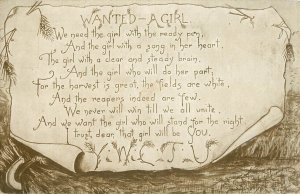 WANTED—A GIRL.
We need the girl with the ready pen,
And the girl with a song in her heart,
The girl with a clear and steady brain,
And the girl who will do her part;
For the harvest is great, the fields are white,
And the reapers indeed are few,
We never will win till we all unite,
And we want the girl who will stand for the right,
I trust, dear, that girl will be YOU.
Y.W.C.T.U.